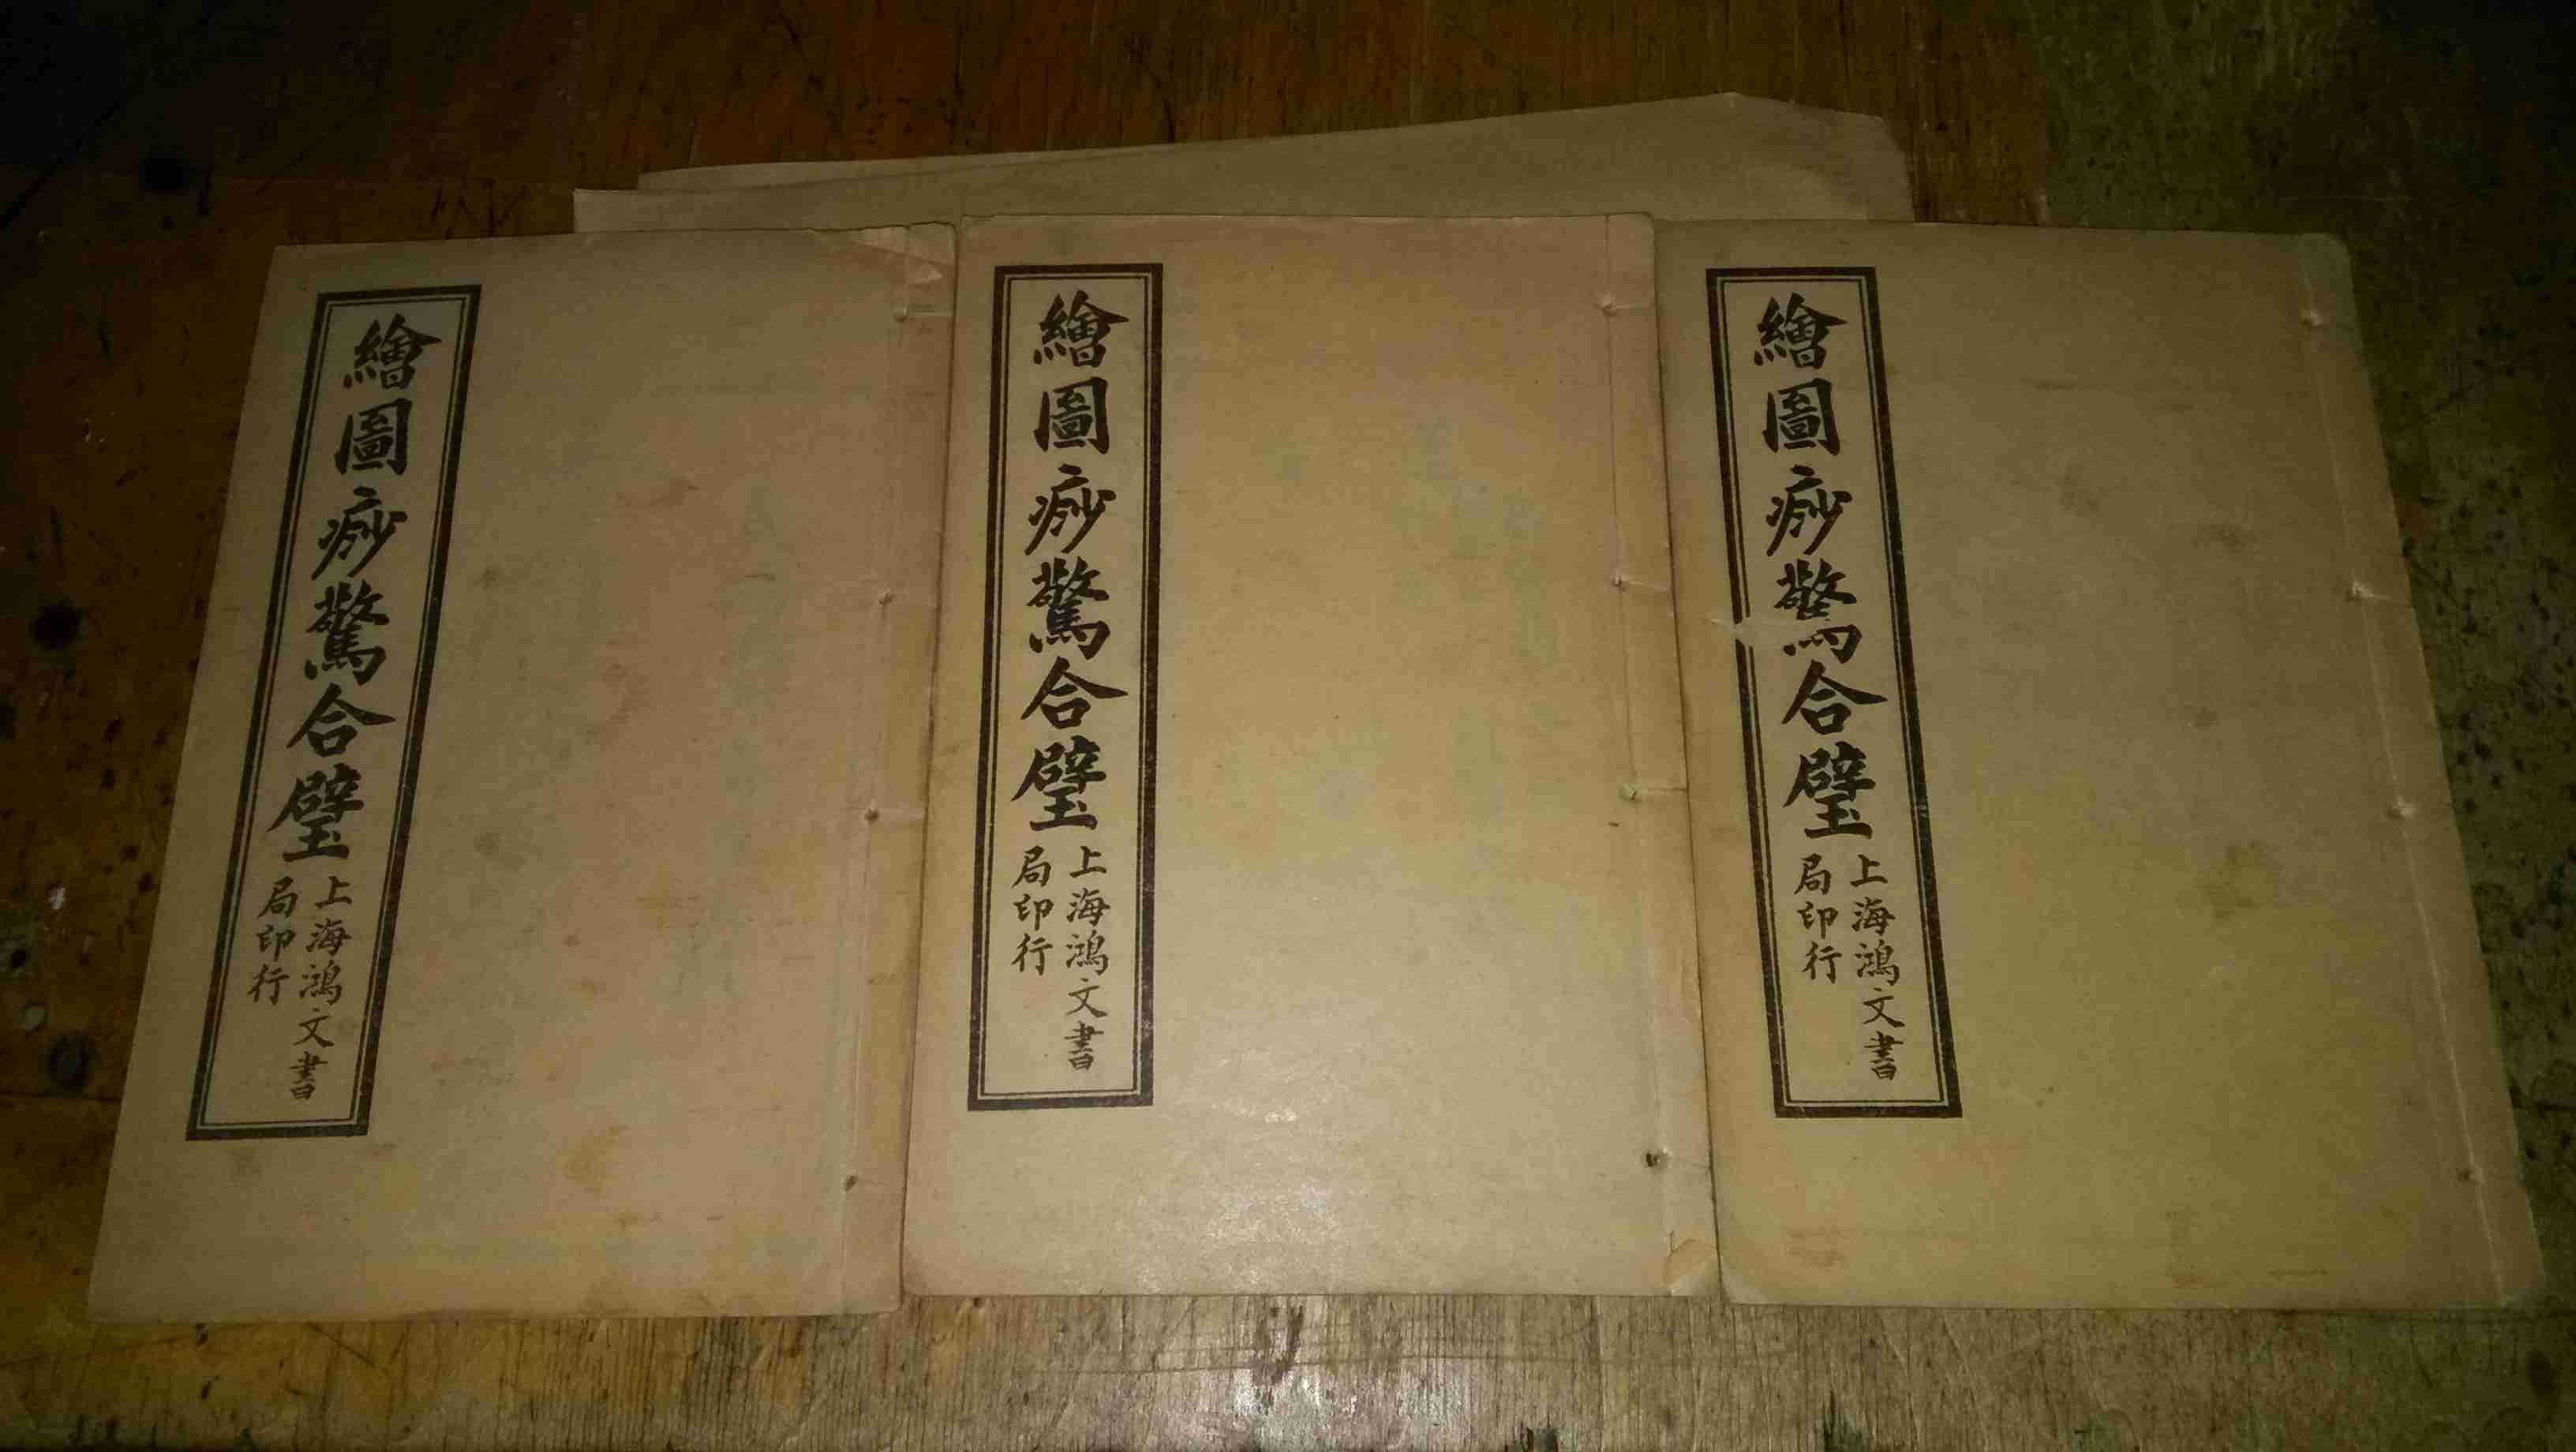 繪圖痧驚合璧
上海鴻文書
局印行
繪圖痧驚合璧
上海鴻文書
局印行
繪圖痧驚合璧
上海鴻文書
局印行